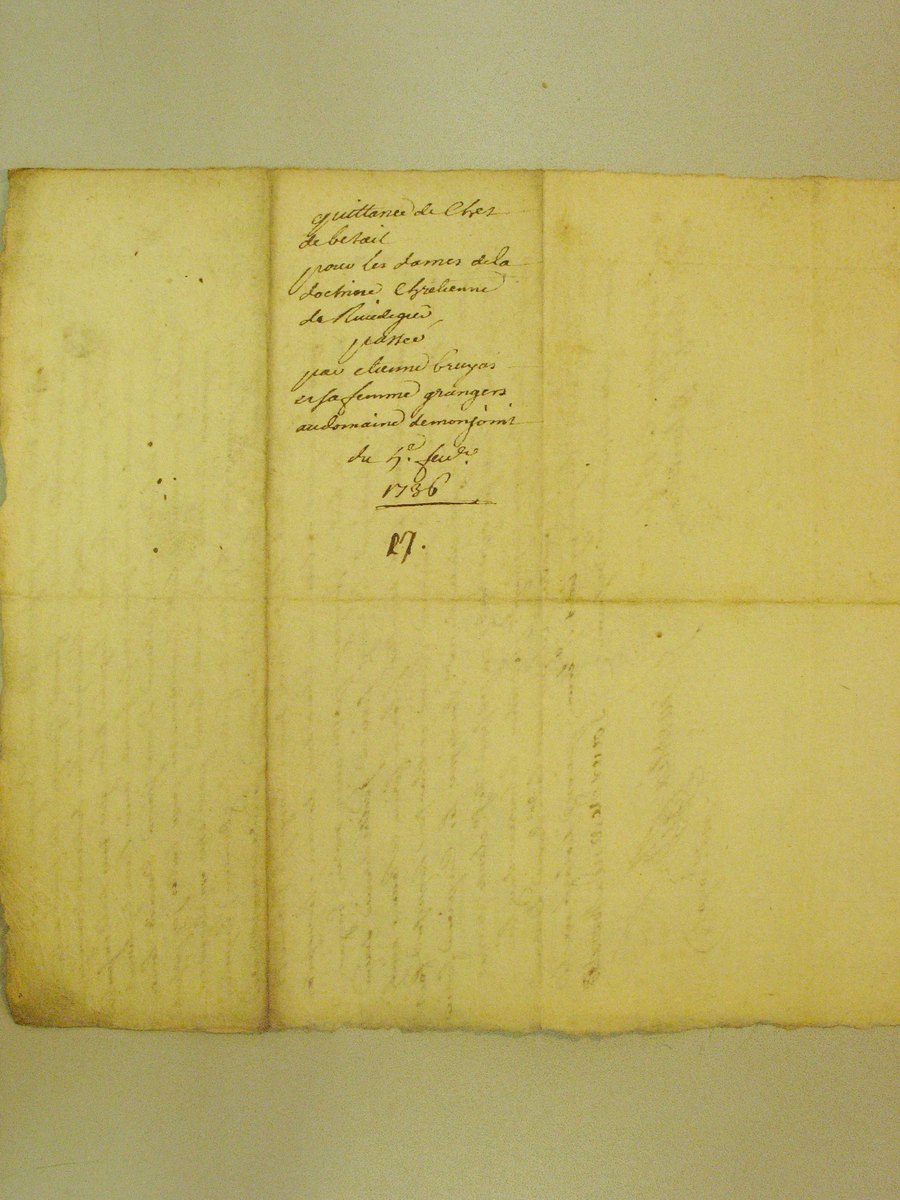 quittance de Chet
de betail
pour les dames de la
doctrine Chretienne
de Rivedegier
passée
par etienne bruyas
et sa femme grangers
au domaine de monjoint
du 5e. feve.
1736
27.